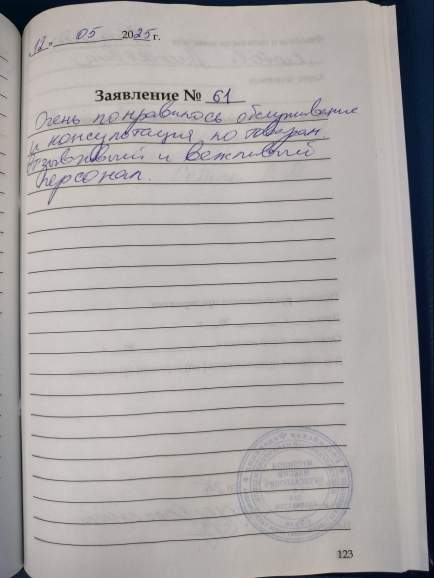 12 05 2025 г.
Заявление № 61
Очень понравилось обслуживание
и консультация по товарам.
Отзывчивый и вежливый
персонал.
123